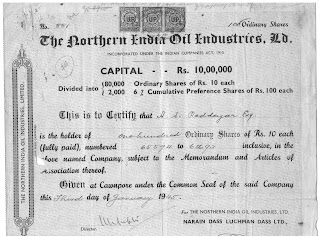 No. 551
100 Ordinary Shares
The Northern India Oil Industries, Ld.
INCORPORATED UNDER THE INDIAN COMPANIES ACT, 1913
CAPITAL - - Rs. 10,00,000
Divided into 80,000 Ordinary Shares of Rs. 10 each
2,000 6% Cumulative Preference Shares of Rs. 100 each
This is to Certify that
is the holder of Onehundred Ordinary Shares of Rs. 10 each
(fully paid), numbered inclusive, in the
above named Company, subject to the Memorandum and Articles of
Association thereof.
Given at Cawnpore under the Common Seal of the said Company
this Third day of January 1945.
For THE NORTHERN INDIA OIL INDUSTRIES, LTD.
NARAIN DASS LUCHMAN DASS LTD.,
Director
THE NORTHERN INDIA OIL INDUSTRIES, LIMITED.